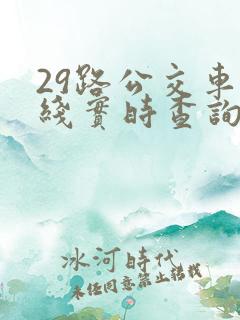 29路公交車
綫實時查詢
冰河時代
未經同意禁止轉載